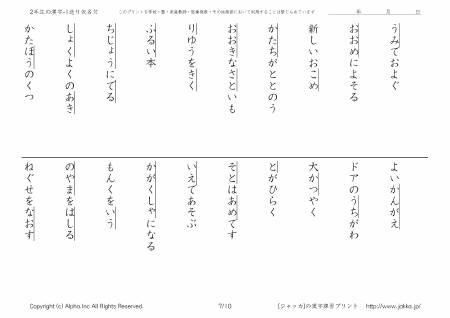 2年生の漢字+送り仮名付
このプリントを学校・塾・家庭教師・医療機関・その他施設において利用することは禁じられています
年 月 日
うみでおよぐ
おおめによそる
新しいおこめ
かたちがととのう
おおきなさといも
りゆうをきく
ふるい本
ちじょうにでる
しょくよくのあき
かたほうのくつ
よいかんがえ
ドアのうちがわ
大かつやく
とがひらく
そとはあめです
いえであそぶ
かがくしゃになる
もんくをいう
のやまをはしる
ねぐせをなおす
Copyright (c) Alpha.Inc All Rights Reserved.
7/10
[ジャッカ]の漢字練習プリント http://www.jakka.jp/